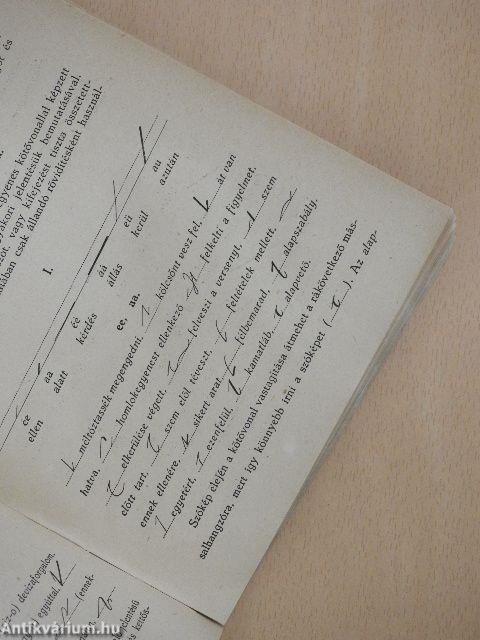 ot és
egyenes kötővonallal képzett
gyakori jelentésük bemutatásával.
szót, vagy kifejezést tiszta összetett-
alában csak állandó rövidítésként használ-
I.
ee aa éé áá eü au
ellén alatt kérdés állás kerül azután
ee, aa.
méltóztassék megengedni, kölcsönt vesz fel, át van
hatva, homlokegyenest ellenkező felkelti a figyelmet,
elkerülése végett, felveszi a versenyt, szem
előtt tart, szem elől téveszt, feltételek mellett,
ennek ellenére, sikert arat, felbomacad, alapszabály,
egyetért, ezenfelül, kamatláb, alapvető.
Szókép elején a kötővonal vastagítása átmehet a rákövetkező más-
salhangzóra, mert így könnyebb írni a szóképet ( ). Az alap-
devizaforgalom,
egyúttal,
(ennek-
kettős-
Antikvárium.hu